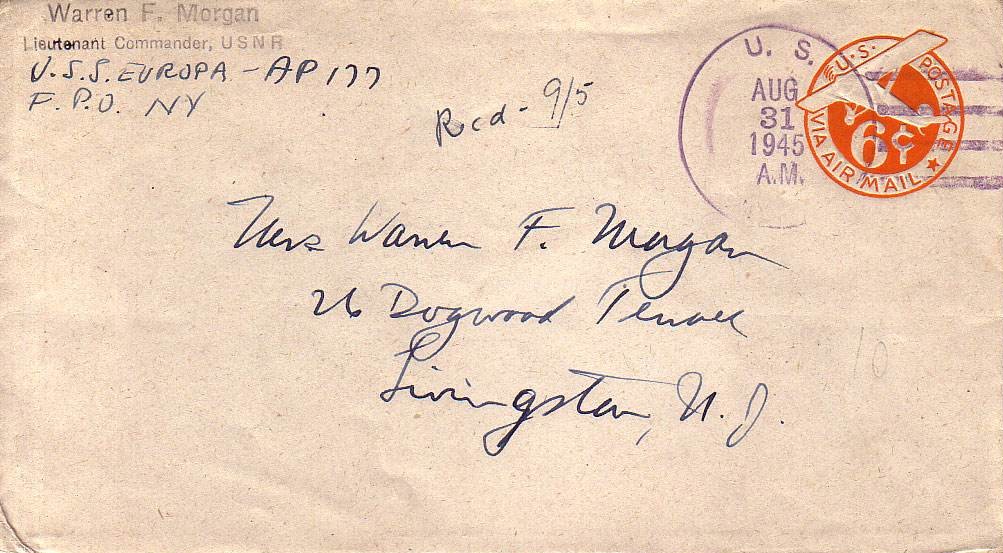 Warren F. Morgan
Lieutenant Commander, USNR
U.S.S. EUROPA - AP 177
F.P.O. NY
Rcd - 9/5
U. S.
AUG
31
1945
A.M.
U.S. POSTAGE
6¢
VIA AIR MAIL
Mrs Warren F. Morgan
26 Dogwood Terrace
Livingston, N.J.
10